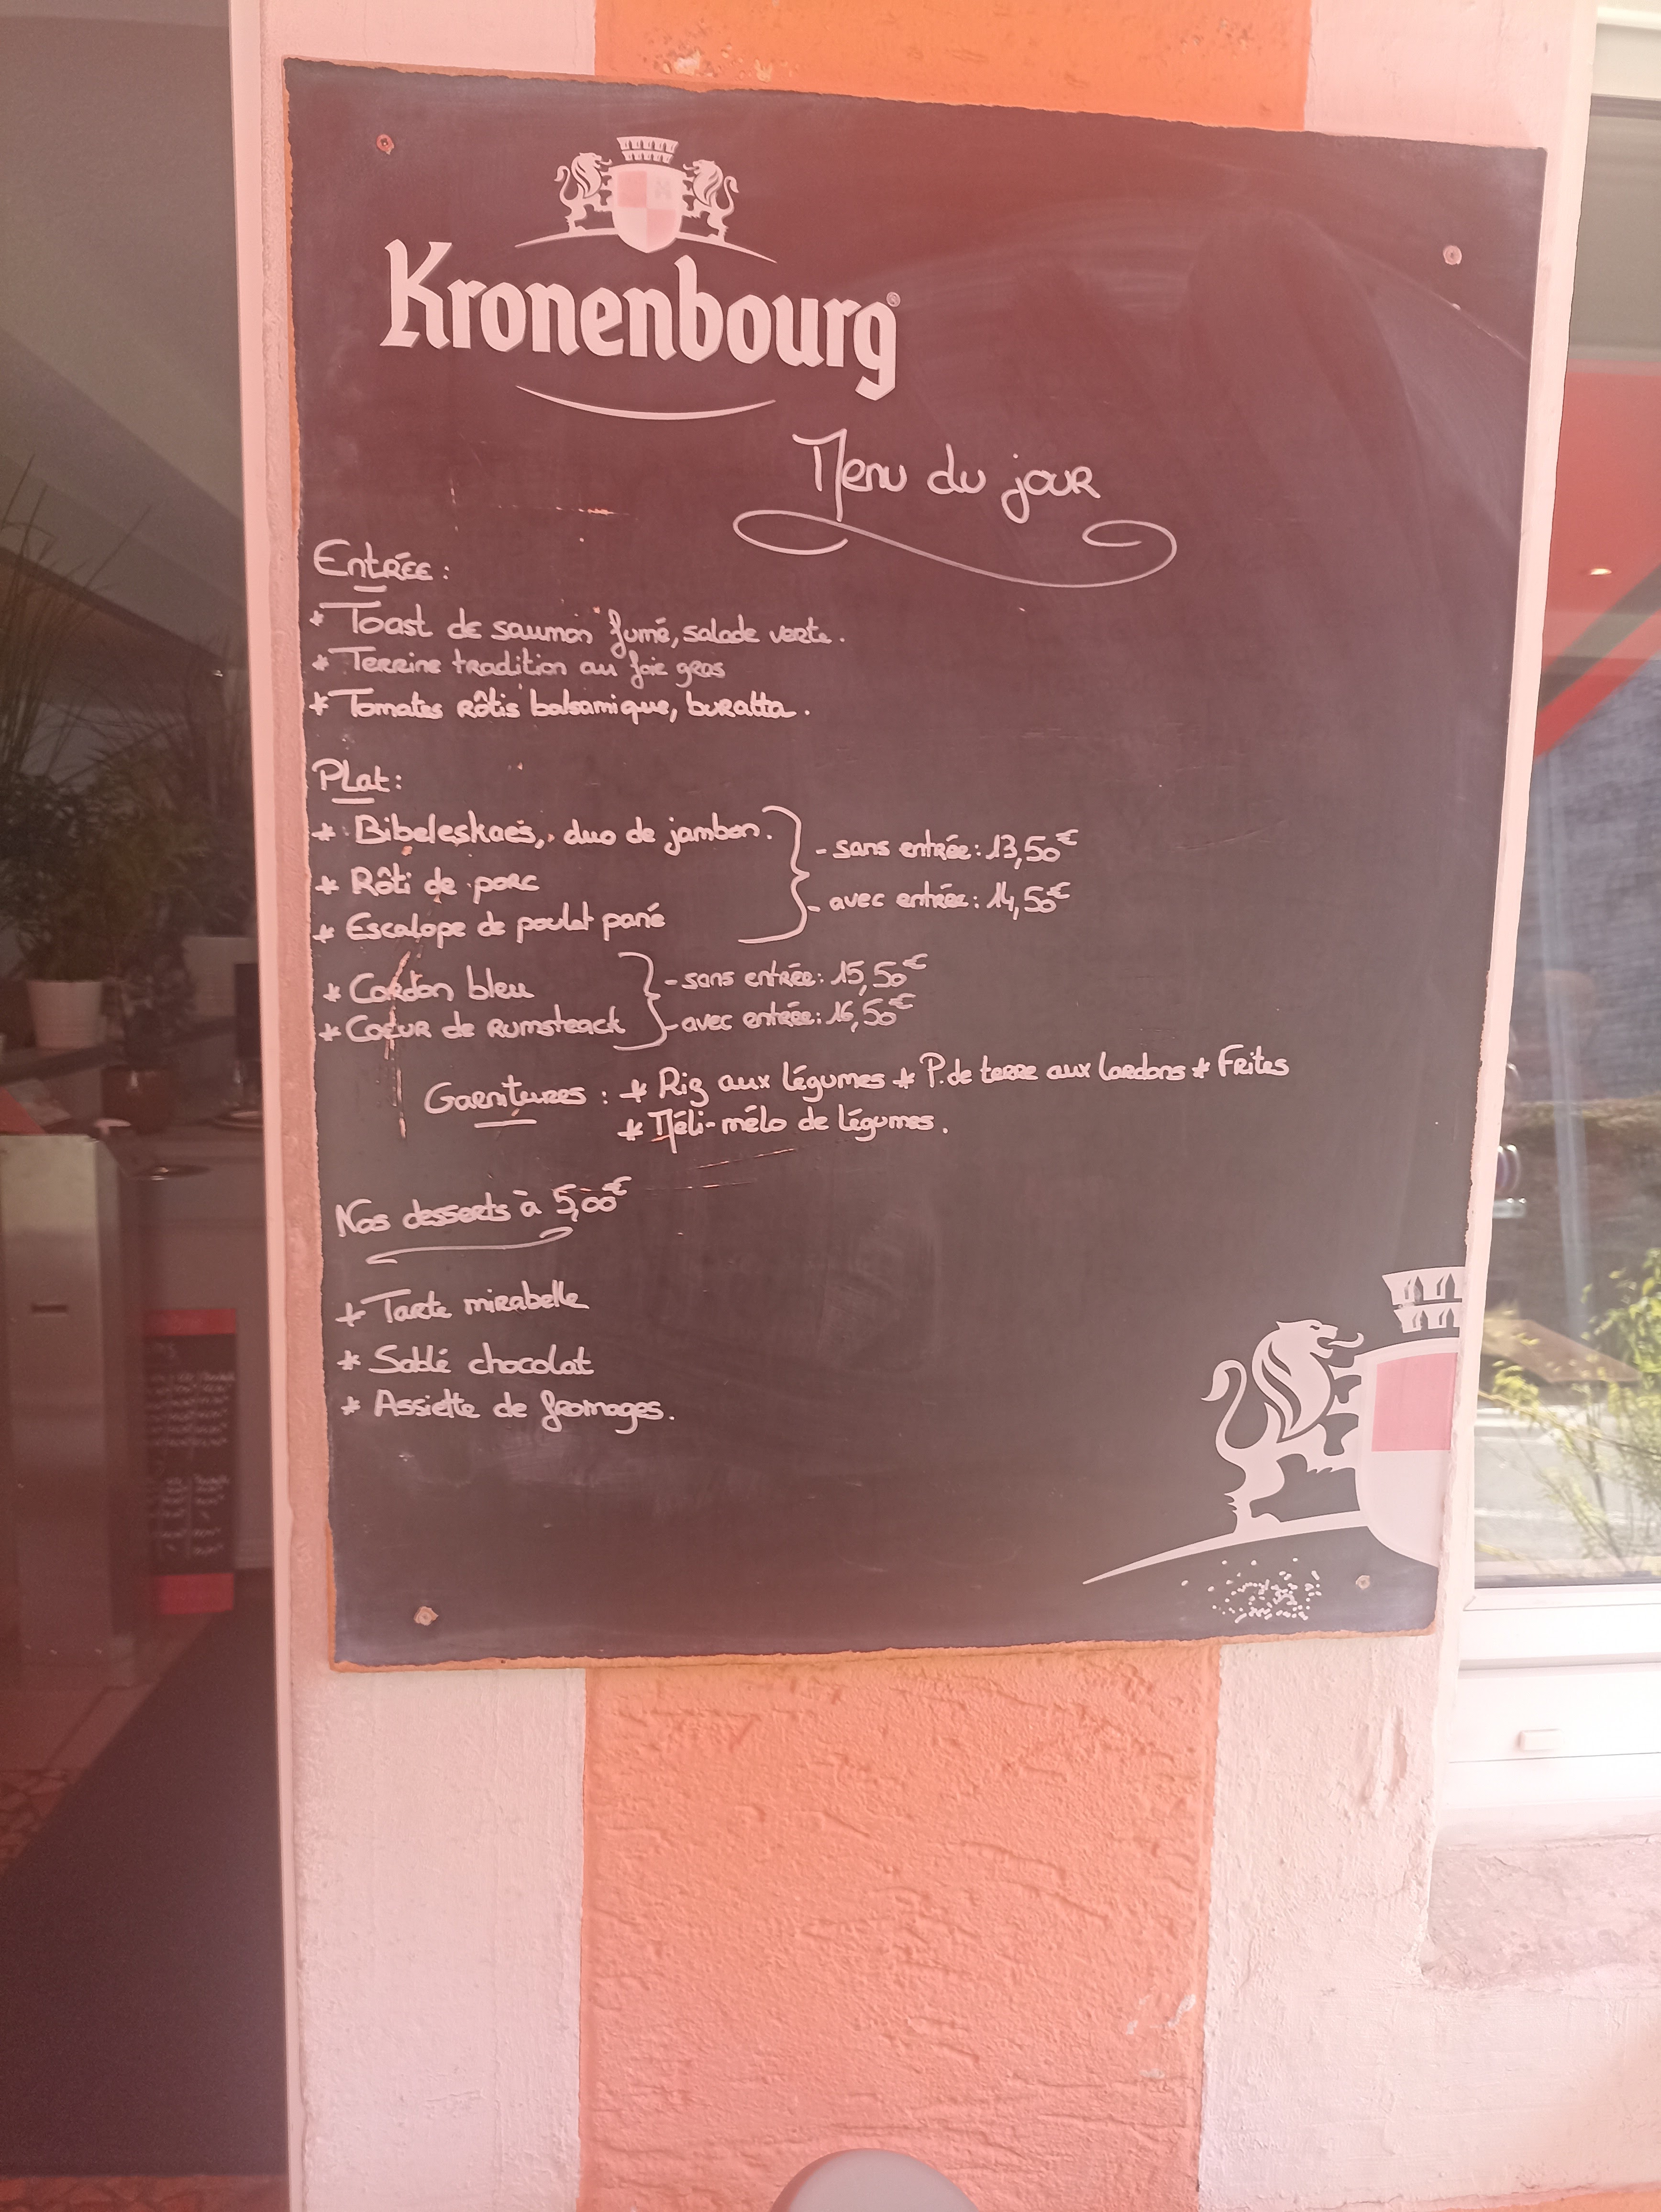 Kronenbourg®
Menu du jour
Entrée :
* Toast de saumon fumé, salade verte.
* Terrine tradition au foie gras
* Tomates rôtis balsamique, buratta.
Plat :
* Bibeleskaes, duo de jambon.
- sans entrée : 13,50€
* Rôti de porc
- avec entrée : 14,50€
* Escalope de poulet pané
* Cordon bleu
- sans entrée : 15,50€
* Coeur de Rumsteack
- avec entrée : 16,50€
Garnitures : * Riz aux légumes * P. de terre aux lardons * Frites
* Méli-mélo de légumes.
Nos desserts à 5,00€
* Tarte mirabelle
* Sablé chocolat
* Assiette de fromages.